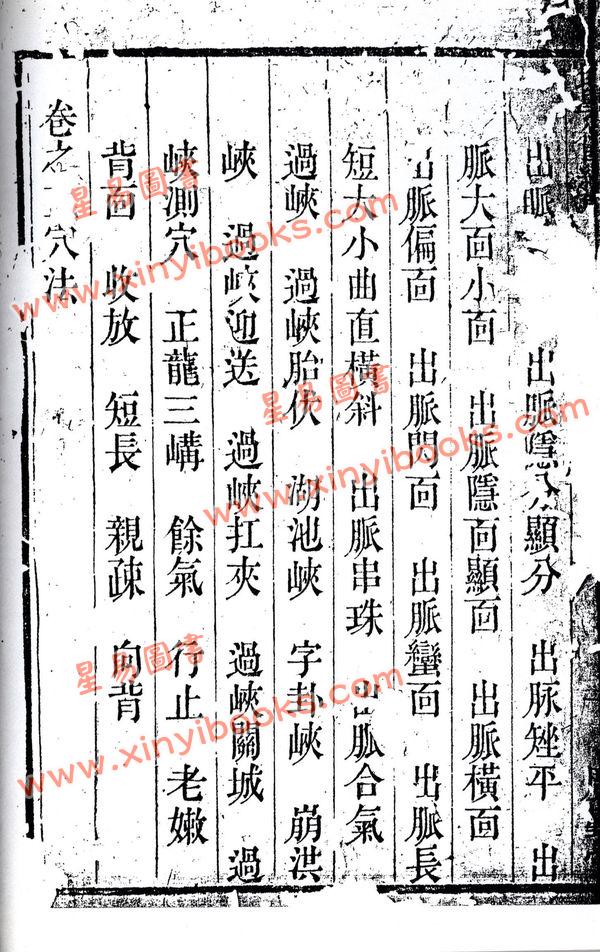 出脈 出脈隱分顯分 出脉矬平 出
脈大面小面 出脈隱面顯面 出脈橫面
出脈偏面 出脈閃面 出脈蠻面 出脈長
短大小曲直橫斜 出脈串珠 出脈合氣
過峽 過峽胎伏 湖池峽 字卦峽 崩洪
峽 過峽迎送 過峽扛夾 過峽關城 過
峽測穴 正龍三嵴 餘氣 行止 老嫩
背面 收放 短長 親疎 向背
卷之 穴法
星易圖書
www.xinyibooks.com
星易圖書
www.xinyibooks.com
星易圖書
www.xinyibooks.com